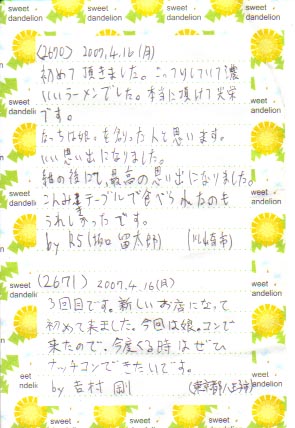 sweet dandelion
(2670) 2007.4.16(月)
初めて頂きました。こってりしていて濃
いいラーメンでした。本当に頂けて光栄
です。
なっちは娘。を創った人と思います。
いい思い出になりました。
の後にて、最高の思い出になりました。
こんみきテーブルで食べられたのも
うれしかったです。
by R5( 留太郎) (川崎市)
(2671) 2007.4.16(月)
3回目です。新しいお店になって
初めて来ました。今回は娘。コンで
来たので、今度くる時はぜひ
ナッチコンできたいです。
by 吉村 剛 (東京都八王子市)